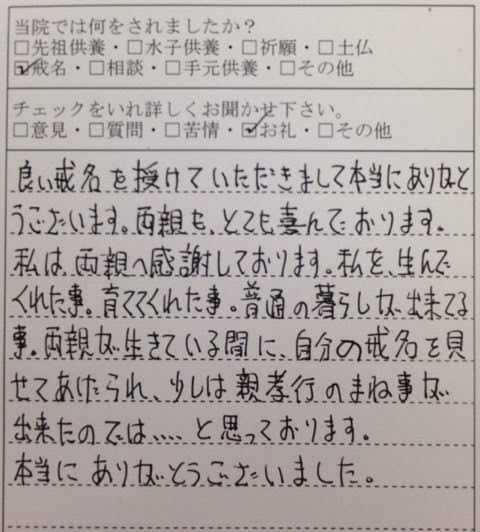 当院では何をされましたか？
□先祖供養・□水子供養・□祈願・□土仏
☑戒名・□相談・□手元供養・□その他
チェックをいれ詳しくお聞かせ下さい。
□意見・□質問・□苦情・☑お礼・□その他
良い戒名を授けていただきまして本当にありがと
うございます。両親も、とても喜んでおります。
私は、両親へ感謝しております。私を、生んで
くれた事。育ててくれた事。普通の暮らしが出来てる
事。両親が生きている間に、自分の戒名を見
せてあげられ、少しは親孝行のまね事が
出来たのでは､､､､､と思っております。
本当にありがとうございました。